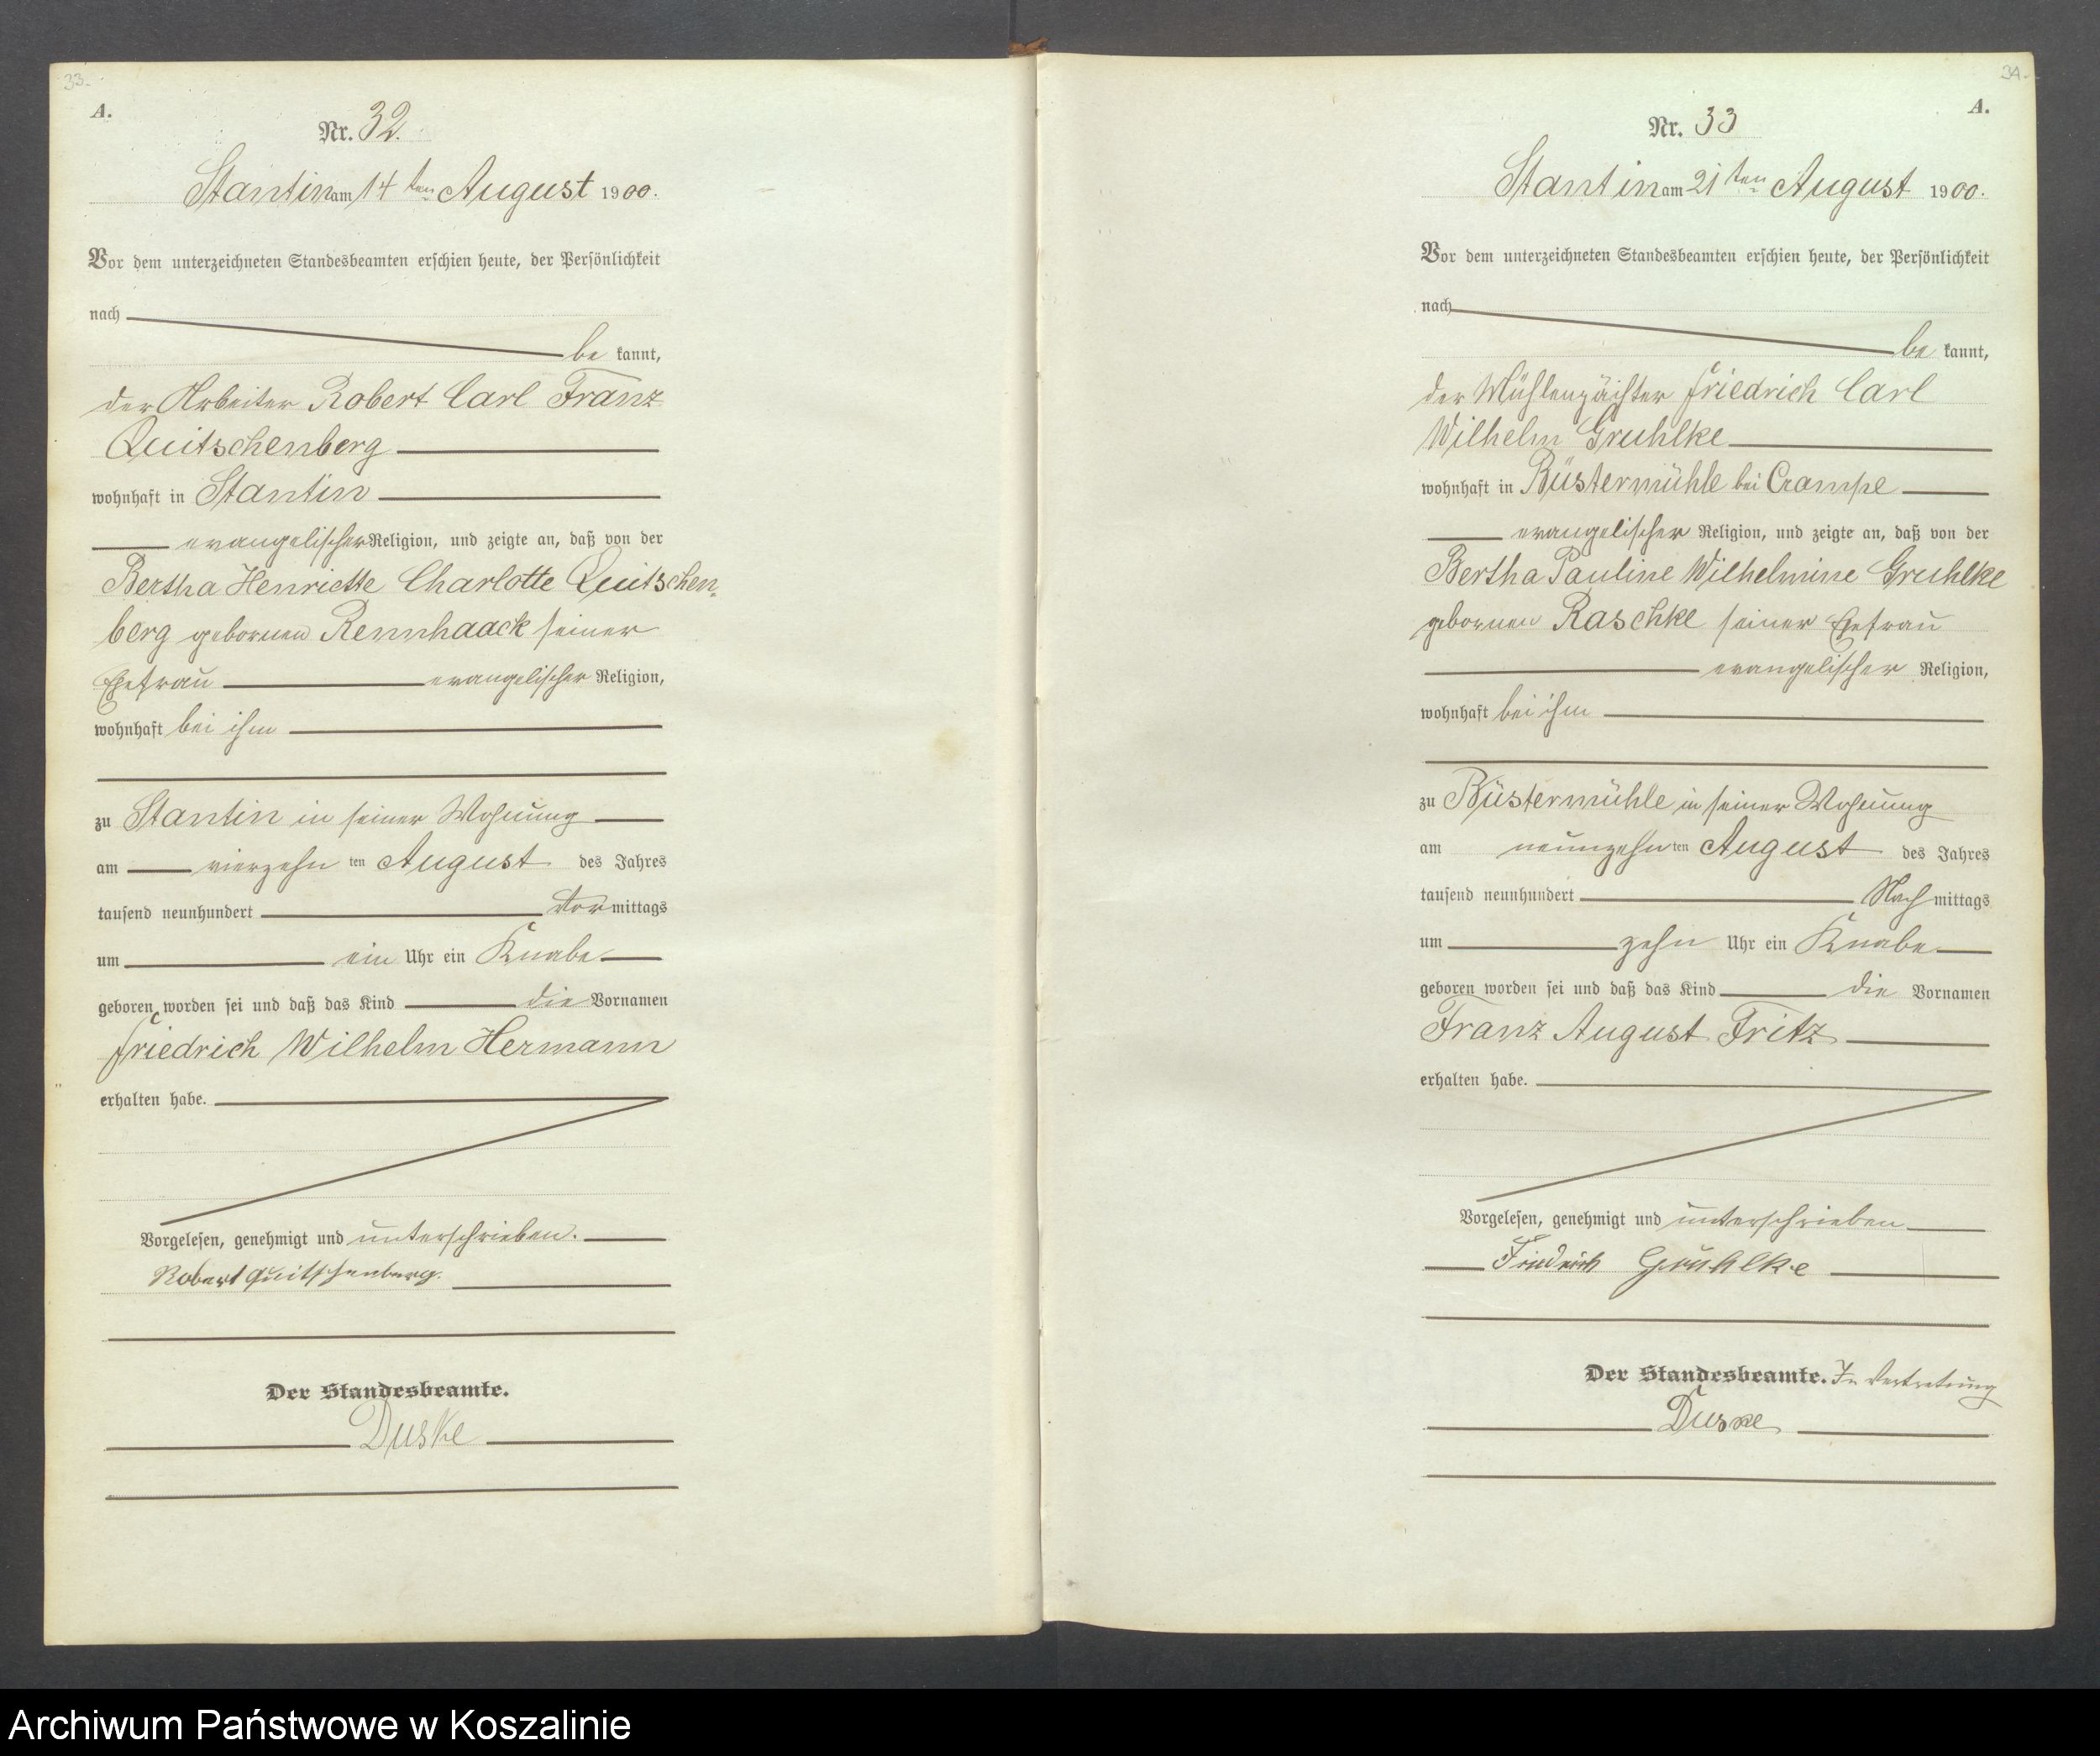 33.
A.
Nr. 32.
Stantin am 14ten August 1900.
Vor dem unterzeichneten Standesbeamten erschien heute, der Persönlichkeit
nach
be kannt,
der Arbeiter Robert Carl Franz
Quitschenberg
wohnhaft in Stantin
evangelischer Religion, und zeigte an, daß von der
Bertha Henriette Charlotte Quitschen-
berg gebornen Rennhaack seiner
Ehefrau evangelischer Religion,
wohnhaft bei ihm
zu Stantin in seiner Wohnung
am vierzehn ten August des Jahres
tausend neunhundert Vor mittags
um ein Uhr ein Knabe
geboren worden sei und daß das Kind die Vornamen
Friedrich Wilhelm Hermann
erhalten habe.
Vorgelesen, genehmigt und unterschrieben.
Robert Quitschenberg.
Der Standesbeamte.
Duske
34.
A.
Nr. 33
Stantin am 21ten August 1900.
Vor dem unterzeichneten Standesbeamten erschien heute, der Persönlichkeit
nach
be kannt,
der Mühlenpächter Friedrich Carl
Wilhelm Gruhlke
wohnhaft in Büstermühle bei Crampe
evangelischer Religion, und zeigte an, daß von der
Bertha Pauline Wilhelmine Gruhlke
gebornen Raschke seiner Ehefrau
evangelischer Religion,
wohnhaft bei ihm
zu Büstermühle in seiner Wohnung
am neunzehn ten August des Jahres
tausend neunhundert Nach mittags
um zehn Uhr ein Knabe
geboren worden sei und daß das Kind die Vornamen
Franz August Fritz
erhalten habe.
Vorgelesen, genehmigt und unterschrieben
Friedrich Gruhlke
Der Standesbeamte. In Vertretung
Duske
Archiwum Państwowe w Koszalinie